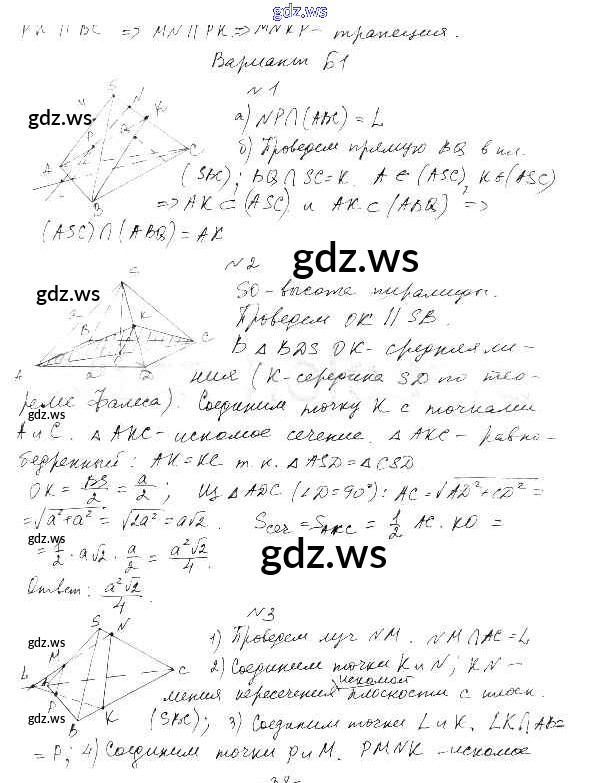 gdz.ws
PK || BC => MN || PK => MNKP - трапеция.
Вариант Б1
№1
а) NP∩(ABC) = L
б) Проведем прямую BQ в пл.
(SBC); BQ∩SC=K. A∈(ASC), K∈(ASC)
=> AK⊂(ASC) и AK⊂(ABQ) =>
(ASC)∩(ABQ)=AK
gdz.ws
gdz.ws
№2
gdz.ws
SO - высота пирамиды.
Проведем OK || SB.
В △BDS OK - средняя ли-
ния (K - середина SD по тео-
реме Фалеса). Соединим точку K с точками
gdz.ws
A и C. △AKC - искомое сечение. △AKC - равно-
бедренный: AK=KC т.к. △ASD=△CSD.
OK = BS/2 = a/2; Из △ADC (∠D=90°): AC=√AD²+CD² =
=√a²+a² = √2a² = a√2. Sсеч = S_AKC = 1/2 AC·KO =
gdz.ws
= 1/2 · a√2 · a/2 = a²√2/4.
gdz.ws
Ответ: a²√2/4.
№3
gdz.ws
1) Проведем луч NM. NM∩AC=L
2) Соединим точки K и N; KN -
линия пересечения искомой плоскости с плоск.
gdz.ws
(SBC); 3) Соединим точки L и K. LK∩AB=
= P; 4) Соединим точки P и M. PMNK - искомое
gdz.ws
-38-